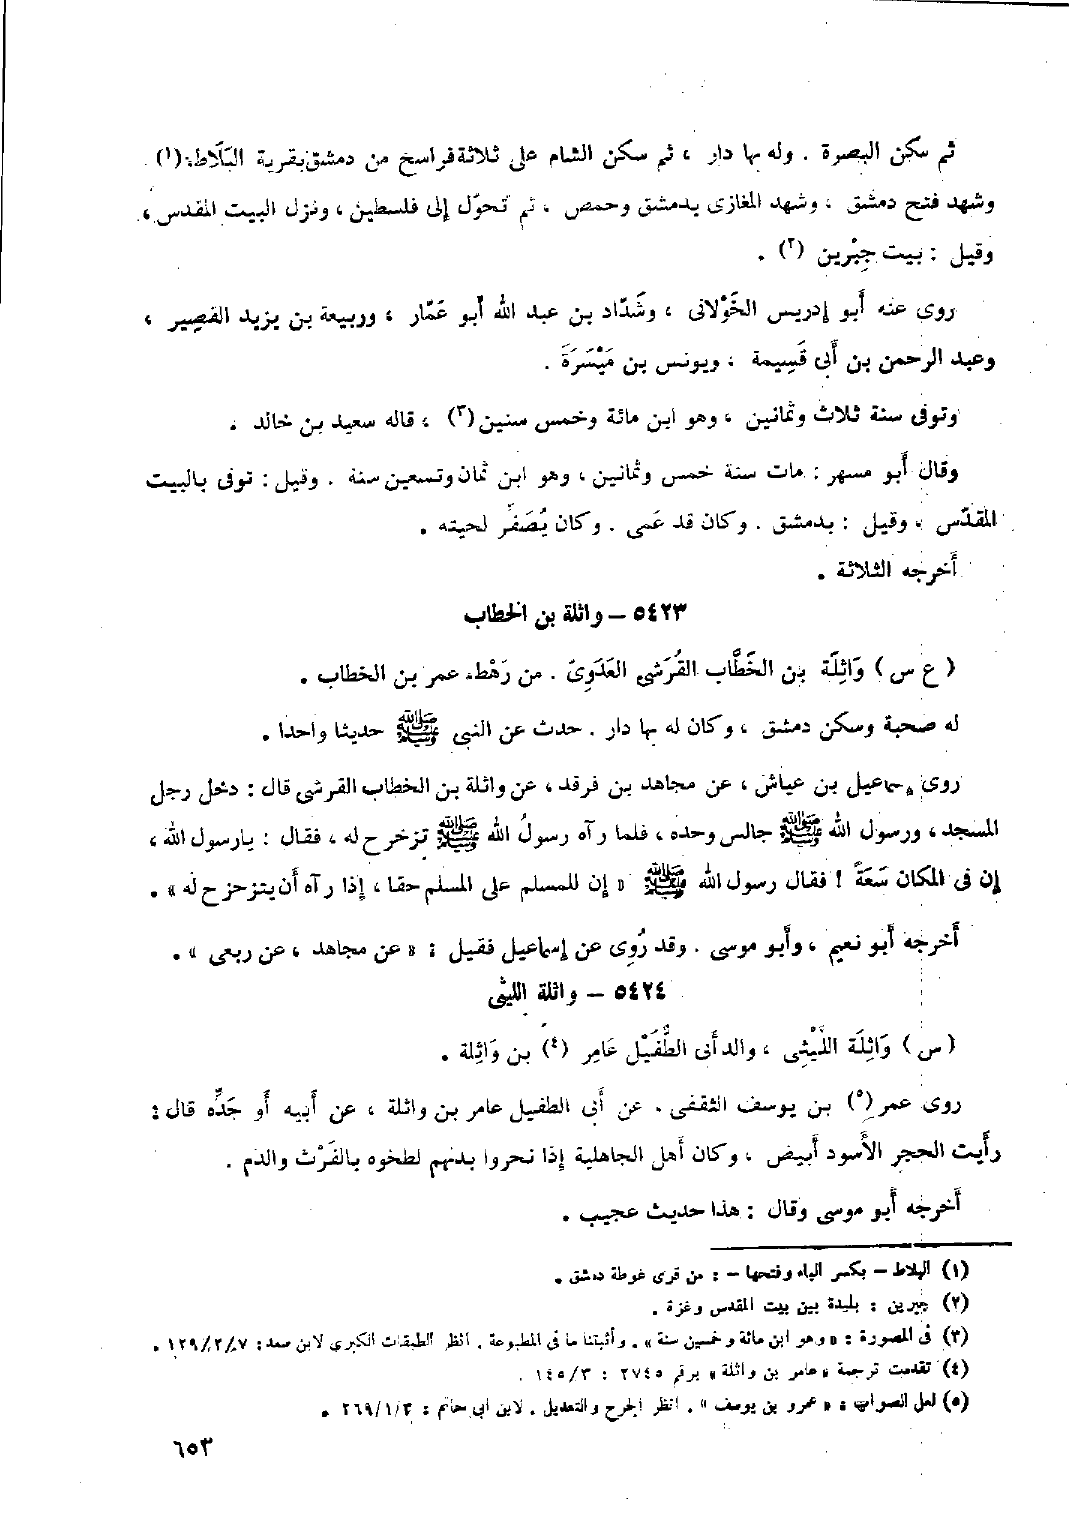 ثم سكن البصرة . وله بها دار ، ثم سكن الشام على ثلاثة فراسخ من دمشق بقرية البَلَاط (١) .
وشهد فتح دمشق ، وشهد المغازى بدمشق وحمص ، ثم تحوّل إلى فلسطين ، ونزل البيت المقدس ،
وقيل : بيت جِبْرين (٢) .
روى عنه أبو إدريس الخَوْلانى ، وشَدّاد بن عبد الله أبو عَمّار ، وربيعة بن يزيد القصِير ،
وعبد الرحمن بن أبى قَسِيمة ، ويونس بن مَيْسَرَة .
وتوفى سنة ثلاث وثمانين ، وهو ابن مائة وخمس سنين (٣) ، قاله سعيد بن خالد .
وقال أبو مسهر : مات سنة خمس وثمانين ، وهو ابن ثمان وتسعين سنة . وقيل : توفى بالبيت
المقدّس ، وقيل : بدمشق . وكان قد عَمى . وكان يُصَفِّر لحيته .
أخرجه الثلاثة .
٥٤٢٣ – واثلة بن الخطاب
( ع س ) وَاثِلَة بن الخَطَّاب القُرَشى العَدَوِىّ . من رَهْط عمر بن الخطاب .
له صحبة وسكن دمشق ، وكان له بها دار . حدث عن النبى ﷺ حديثا واحدا .
روى إسماعيل بن عياش ، عن مجاهد بن فرقد ، عن واثلة بن الخطاب القرشى قال : دخل رجل
المسجد ، ورسول الله ﷺ جالس وحده ، فلما رآه رسولُ الله ﷺ تزحزح له ، فقال : يا رسول الله ،
إن فى المكان سَعَةً ! فقال رسول الله ﷺ « إن للمسلم على المسلم حقا ، إذا رآه أن يتزحزح له » .
أخرجه أبو نعيم ، وأبو موسى . وقد رُوِى عن إسماعيل فقيل : « عن مجاهد ، عن ربعى » .
٥٤٢٤ – واثلة الليثى
( س ) وَاثِلَة اللَّيْثِى ، والد أبى الطُّفَيْل عَامِر (٤) بن وَاثِلة .
روى عمر (٥) بن يوسف الثقفى . عن أبى الطفيل عامر بن واثلة ، عن أبيه أو جَدِّه قال :
رأيت الحجر الأسود أبيض ، وكان أهل الجاهلية إذا نحروا بدنهم لطخوه بالفَرْث والدم .
أخرجه أبو موسى وقال : هذا حديث عجيب .
(١) البلاط – بكسر الباء وفتحها – : من قرى غوطة دمشق .
(٢) جبرين : بليدة بين بيت المقدس وغزة .
(٣) فى المصورة : « وهو ابن مائة وخمسين سنة » . وأثبتنا ما فى المطبوعة . انظر الطبقات الكبرى لابن سعد : ١٢٩/٢/٧ .
(٤) تقدمت ترجمة « عامر بن واثلة » برقم ٢٧٤٥ : ١٤٥/٣ .
(٥) لعل الصواب : « عمرو بن يوسف » . انظر الجرح والتعديل . لابن أبى حاتم : ٢٦٩/١/٣ .
٦٥٣